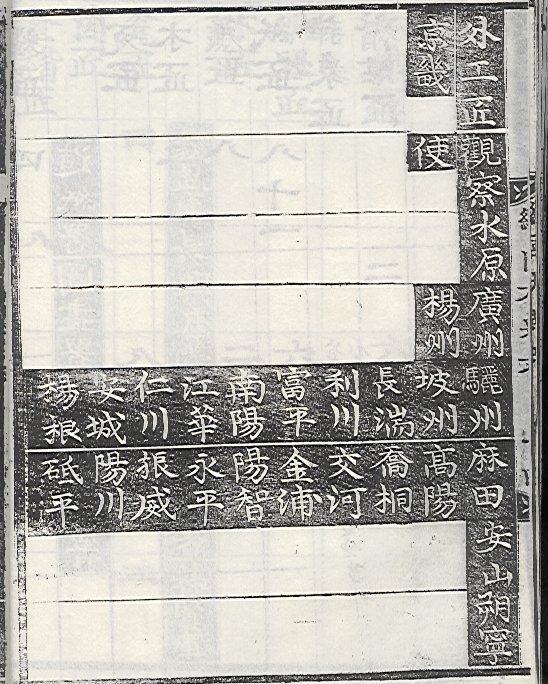 外工匠
京畿
觀察使
水原
廣州 楊州
驪州 坡州 長湍 利川 富平 南陽 江華 仁川 安城 楊根
麻田 高陽 喬桐 交河 金浦 陽智 永平 振威 陽川 砥平
安山
朔寧